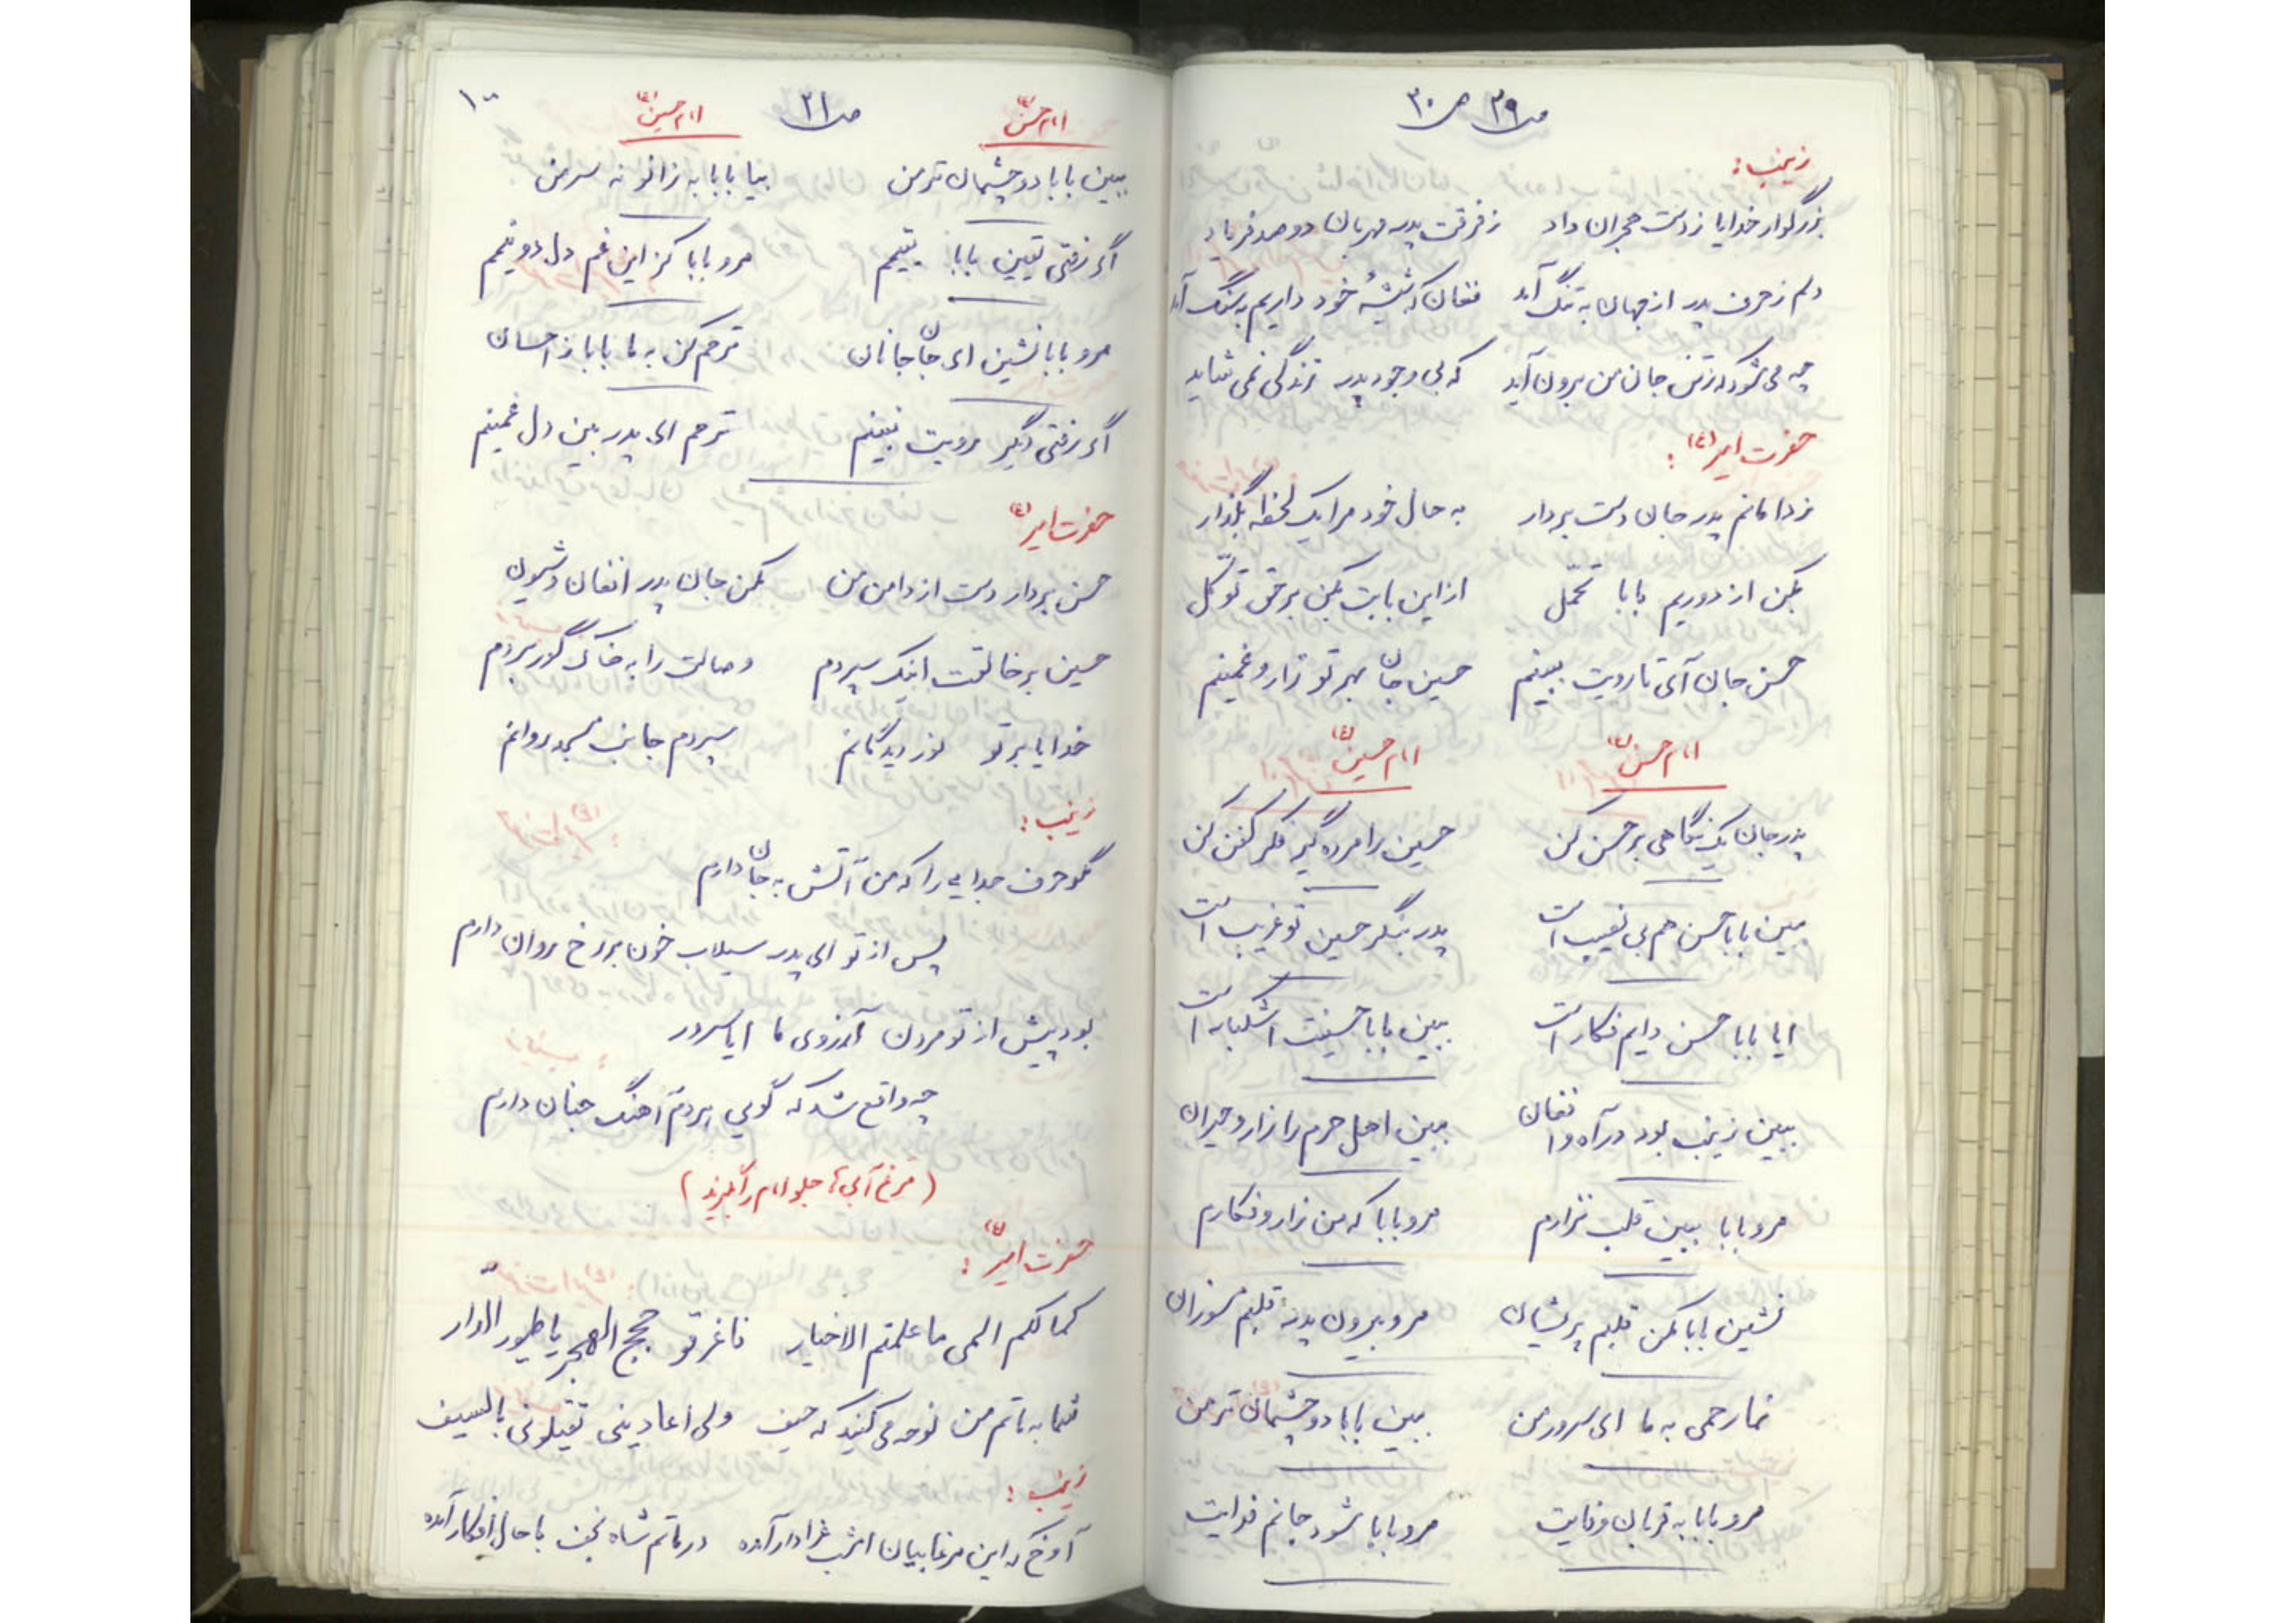 ص ۲۹ ص ۳۰
زینب:
بزرگوار خدایا ز دست هجران داد ز فرقت پدر مهربان دو صد فریاد
دلم ز حرف پدر از جهان به تنگ آمد فغان که شیشهٔ خود داریم به سنگ آمد
چه می شود که ز تن جان من برون آید که بی وجود پدر زندگی نمی شاید
حضرت امیر (ع):
ز دامانم پدر جان دست بردار به حال خود مرا یک لحظه بگذار
بکن از دوریم بابا تحمّل از این بابت بکن بر حق توکّل
حسن جان آی تا رویت ببینم حسین جان بهر تو زار و غمینم
امام حسن (ع) امام حسین (ع)
پدر جان یک نگاهی بر حسن کن حسین را مرده گیر فکر کفن کن
ببین بابا حسن هم بی نصیب است پدر بنگر حسین تو غریب است
ایا بابا حسن دایم فکار است ببین بابا حسینت اشکبار است
ببین زینب بود در آه و افغان ببین اهل حرم را زار و حیران
مرو بابا ببین قلب نزارم مرو بابا که من زار و فکارم
نشین بابا مکن قلبم پریشان مرو بیرون پدر قلبم مسوزان
نما رحمی به ما ای سرور من ببین بابا دو چشمان تر من
مرو بابا به قربان وفایت مرو بابا شود جانم فدایت
ص ۳۱
امام حسن (ع) امام حسین (ع)
ببین بابا دو چشمان تر من بیا بابا به زانو نه سر من
اگر رفتی یقین بابا یتیمم مرو بابا کز این غم دل دو نیمم
مرو بابا نشین ای جان جانان ترحم کن به ما بابا ز احسان
اگر رفتی دگر رویت نبینم ترحم ای پدر بین دل غمینم
حضرت امیر (ع)
حسن بردار دست از دامن من مکن جان پدر افغان و شیون
حسین بر خالقت اینک سپردم وصالت را به خاک گور بردم
خدایا بر تو نور دیدگانم سپردم جانب مسجد روانم
زینب:
مگو حرف جدایی را که من آتش به جان دارم
پس از تو ای پدر سیلاب خون بر رخ روان دارم
بود پیش از تو مردن آرزوی ما ایا سرور
چه واقع شد که گویی بر دم آهنگ جنان دارم
(مرغ آبی ها جلو امام را بگیرند)
حضرت امیر (ع):
کمالکم المی ما علمتم الاخیار فاغرقو حجج الهجر یا طیور الدار
شما به ماتم من نوحه می کنید که حیف ولی اعادینی تقتلونی بالسیف
زینب:
آوخ که این مرغابیان امشب عزادار آمده در ماتم شاه نجف با حال افکار آمده